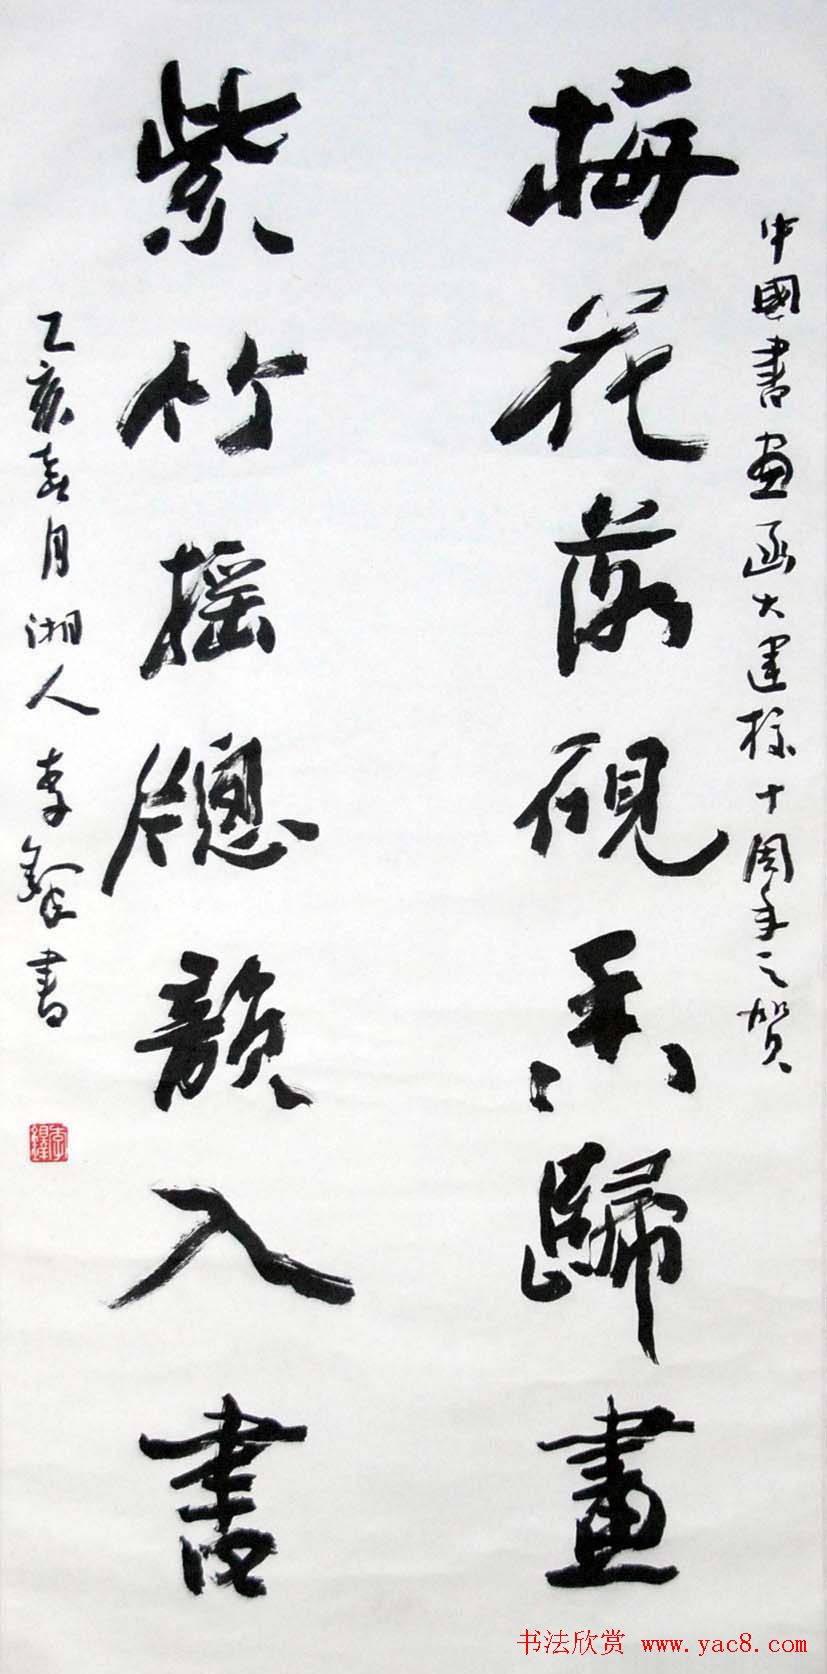 中國書画函大建校十周年之賀
梅花落硯香歸畫
紫竹摇牕韻入書
乙亥春月湘人李鐸書
李鐸
书法欣赏 www.yac8.com